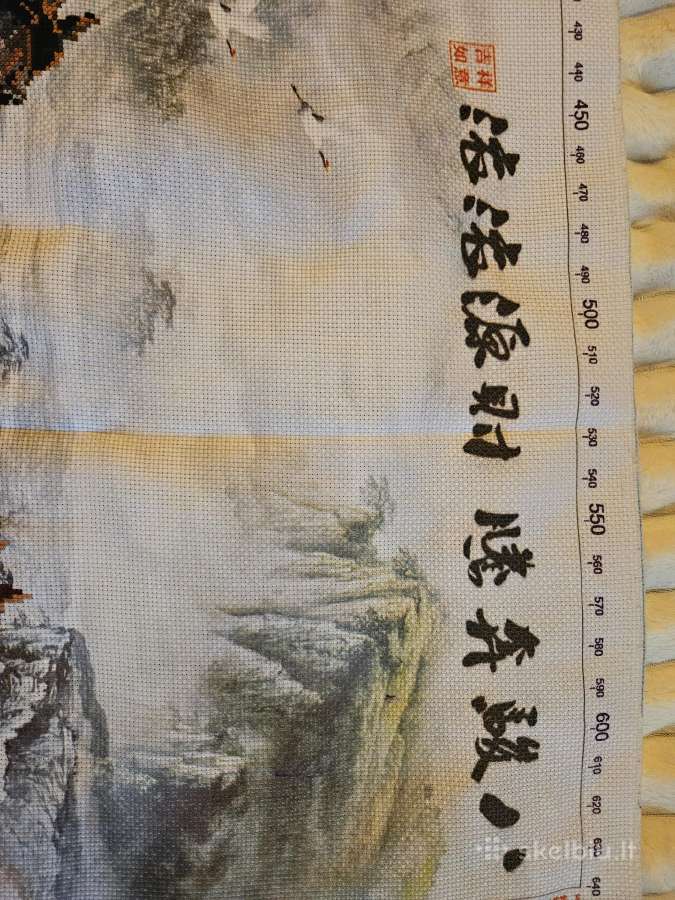 八骏奔腾 财源滚滚
吉祥如意
430 440 450 460 470 480 490 500 510 520 530 540 550 560 570 580 590 600 610 620 630 640
skelbiu.lt